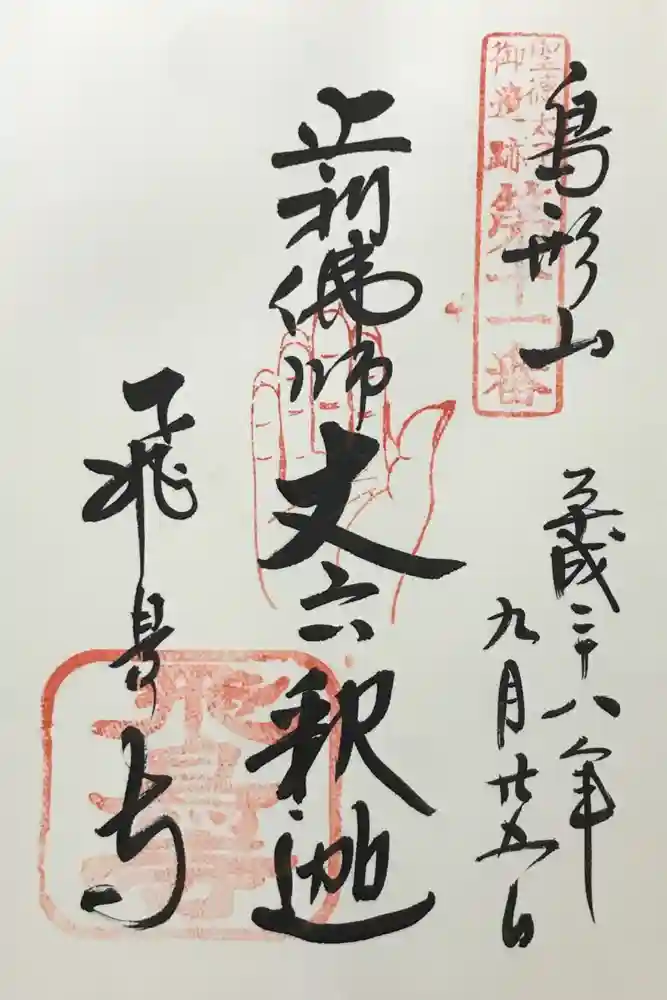 鳥形山
聖徳太子
御遺跡第十一番
平成二十八年
九月廿五日
止利佛師丈六釈迦
飛鳥寺
飛鳥寺